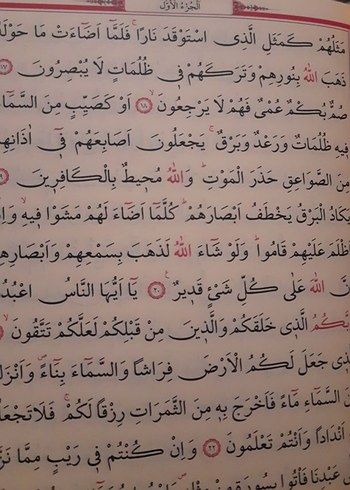 الجزء الأول
مَثَلُهُمْ كَمَثَلِ الَّذِي اسْتَوْقَدَ نَارًاۚ فَلَمَّٓا اَضَٓاءَتْ مَا حَوْلَهُ
ذَهَبَ اللّٰهُ بِنُورِهِمْ وَتَرَكَهُمْ فِي ظُلُمَاتٍ لَا يُبْصِرُونَ ١٧
صُمٌّ بُكْمٌ عُمْيٌ فَهُمْ لَا يَرْجِعُونَۙ ١٨ اَوْ كَصَيِّبٍ مِنَ السَّمَٓاءِ
فِيهِ ظُلُمَاتٌ وَرَعْدٌ وَبَرْقٌۚ يَجْعَلُونَ اَصَابِعَهُمْ فِٓي اٰذَانِهِمْ
مِنَ الصَّوَاعِقِ حَذَرَ الْمَوْتِۜ وَاللّٰهُ مُحِيطٌ بِالْكَافِرِينَ
يَكَادُ الْبَرْقُ يَخْطَفُ اَبْصَارَهُمْۜ كُلَّمَٓا اَضَٓاءَ لَهُمْ مَشَوْا فِيهِۙ
اَظْلَمَ عَلَيْهِمْ قَامُواۜ وَلَوْ شَٓاءَ اللّٰهُ لَذَهَبَ بِسَمْعِهِمْ وَاَبْصَارِهِمْ
اللّٰهَ عَلٰى كُلِّ شَيْءٍ قَدِيرٌ ٢٠ يَٓا اَيُّهَا النَّاسُ اعْبُدُوا
رَبَّكُمُ الَّذِي خَلَقَكُمْ وَالَّذِينَ مِنْ قَبْلِكُمْ لَعَلَّكُمْ تَتَّقُونَۙ
جَعَلَ لَكُمُ الْاَرْضَ فِرَاشًا وَالسَّمَٓاءَ بِنَٓاءًۖ وَاَنْزَلَ
السَّمَٓاءِ مَٓاءً فَاَخْرَجَ بِهِ مِنَ الثَّمَرَاتِ رِزْقًا لَكُمْۚ فَلَا تَجْعَلُوا
اَنْدَادًا وَاَنْتُمْ تَعْلَمُونَ ٢٢ وَاِنْ كُنْتُمْ فِي رَيْبٍ مِمَّا
عَبْدِنَا فَأْتُوا بِسُورَةٍ مِنْ